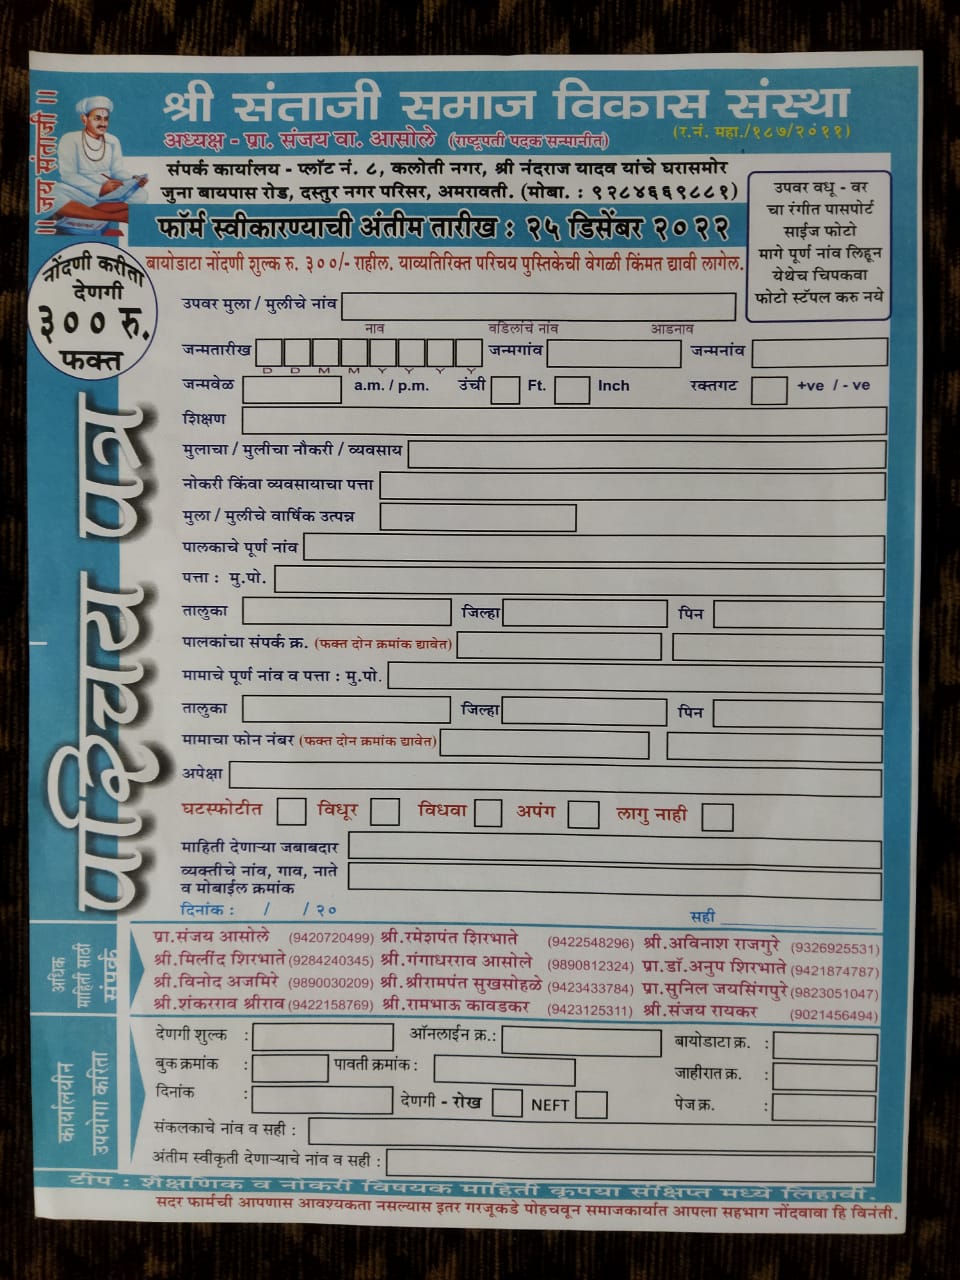 ॥ जय संताजी ॥
श्री संताजी समाज विकास संस्था
अध्यक्ष - प्रा. संजय वा. आसोले (राष्ट्रपती पदक सन्मानीत)
(र.नं. महा./१८७/२०११)
संपर्क कार्यालय - प्लॉट नं. ८, कलोती नगर, श्री नंदराज यादव यांचे घरासमोर
जुना बायपास रोड, दस्तुर नगर परिसर, अमरावती. (मोबा. : ९२८४६६९८८१)
फॉर्म स्वीकारण्याची अंतीम तारीख : २५ डिसेंबर २०२२
उपवर वधू - वर
चा रंगीत पासपोर्ट
साईज फोटो
मागे पूर्ण नांव लिहून
येथेच चिपकवा
फोटो स्टॅपल करु नये
नोंदणी करीता
देणगी
३०० रु.
फक्त
बायोडाटा नोंदणी शुल्क रु. ३००/- राहील. याव्यतिरिक्त परिचय पुस्तिकेची वेगळी किंमत द्यावी लागेल.
परिचय पत्र
उपवर मुला / मुलीचे नांव
नाव वडिलांचे नांव आडनाव
जन्मतारीख जन्मगांव जन्मनांव
D D M M Y Y Y Y
जन्मवेळ a.m. / p.m. उंची Ft. Inch रक्तगट +ve / - ve
शिक्षण
मुलाचा / मुलीचा नौकरी / व्यवसाय
नोकरी किंवा व्यवसायाचा पत्ता
मुला / मुलीचे वार्षिक उत्पन्न
पालकाचे पूर्ण नांव
पत्ता : मु.पो.
तालुका जिल्हा पिन
पालकांचा संपर्क क्र. (फक्त दोन क्रमांक द्यावेत)
मामाचे पूर्ण नांव व पत्ता : मु.पो.
तालुका जिल्हा पिन
मामाचा फोन नंबर (फक्त दोन क्रमांक द्यावेत)
अपेक्षा
घटस्फोटीत विधूर विधवा अपंग लागु नाही
माहिती देणाऱ्या जबाबदार
व्यक्तीचे नांव, गाव, नाते
व मोबाईल क्रमांक
दिनांक : / / २० सही
अधिक
माहिती साठी
संपर्क
प्रा.संजय आसोले (9420720499) श्री.रमेशपंत शिरभाते (9422548296) श्री.अविनाश राजगुरे (9326925531)
श्री.मिलींद शिरभाते (9284240345) श्री.गंगाधरराव आसोले (9890812324) प्रा.डॉ.अनुप शिरभाते (9421874787)
श्री.विनोद अजमिरे (9890030209) श्री.श्रीरामपंत सुखसोहळे (9423433784) प्रा.सुनिल जयसिंगपुरे (9823051047)
श्री.शंकरराव श्रीराव (9422158769) श्री.रामभाऊ कावडकर (9423125311) श्री.संजय रायकर (9021456494)
कार्यालयीन
उपयोगा करिता
देणगी शुल्क : ऑनलाईन क्र.: बायोडाटा क्र. :
बुक क्रमांक : पावती क्रमांक : जाहीरात क्र. :
दिनांक : देणगी - रोख NEFT पेज क्र. :
संकलकाचे नांव व सही :
अंतीम स्वीकृती देणाऱ्याचे नांव व सही :
टीप : शैक्षणिक व नोकरी विषयक माहिती कृपया संक्षिप्त मध्ये लिहावी.
सदर फार्मची आपणास आवश्यकता नसल्यास इतर गरजूकडे पोहचवून समाजकार्यात आपला सहभाग नोंदवावा हि विनंती.